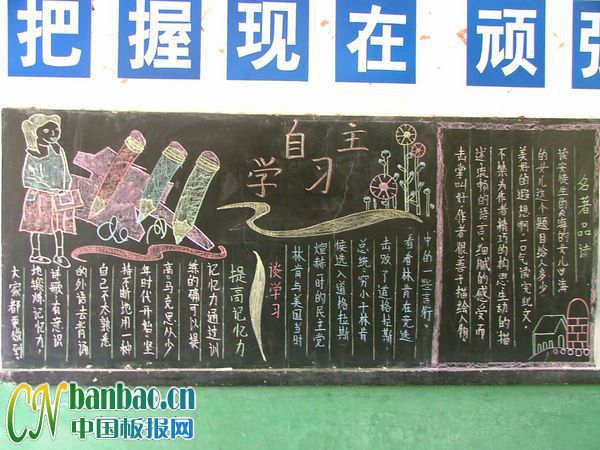 把握现在顽强
自主
学习
提高记忆力
记忆力通过训
练的确可以提
高,马克思从少
年时代开始,坚
持不断地用一种
自己不太熟悉
的外语去背诵
诗歌,有意识
地锻炼记忆力,
大家都要做到
谈学习
林肯与美国当时
煊赫一时的民主党
候选人道格拉斯
总统,穷小子林肯
击败了道格拉斯
看看林肯在竞选
中的一些言行。
名著品读
读安徒生的《海的女儿》,海
的女儿这个题目给人多少
美好的遐想啊!一口气读完此文,
不禁为作者精巧的构思生动的描
述流畅的语言细腻的感受而
击掌叫好,作者很善于描绘人物.
CNbanbao.cn
中国板报网